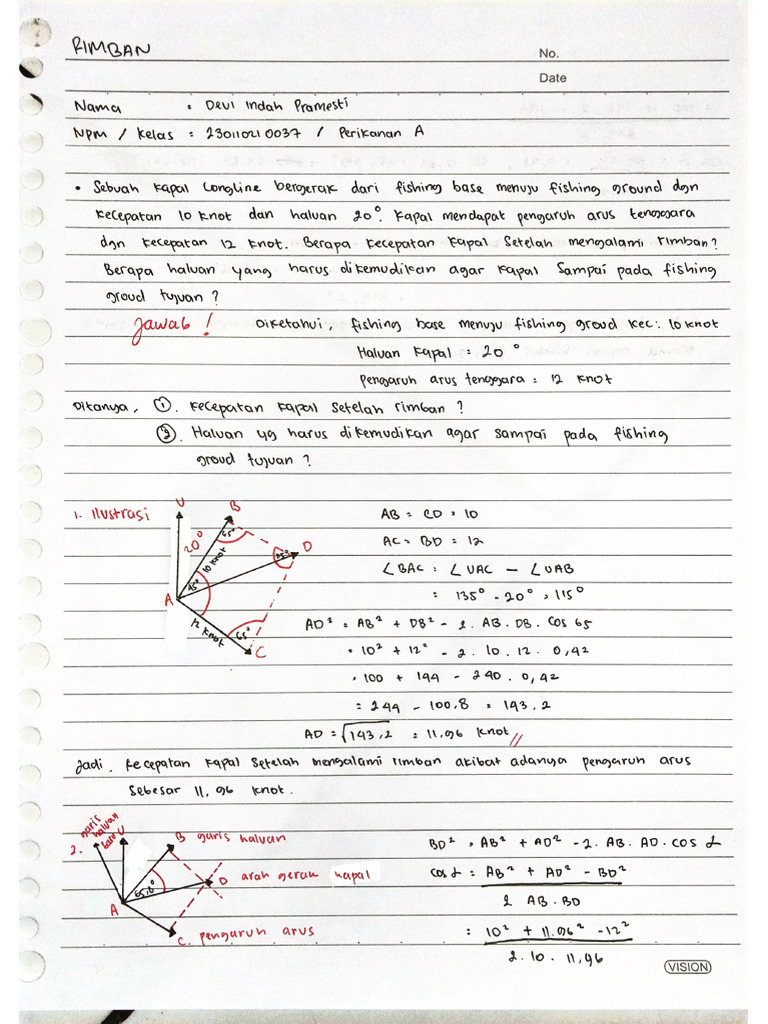 RIMBAN
No.
Date
Nama : Devi Indah Pramesti
NPM / Kelas : 230110210037 / Perikanan A
• Sebuah kapal longline bergerak dari fishing base menuju fishing ground dgn
kecepatan 10 knot dan haluan 20°. Kapal mendapat pengaruh arus tenggara
dgn kecepatan 12 knot. Berapa kecepatan kapal setelah mengalami rimban?
Berapa haluan yang harus dikemudikan agar kapal sampai pada fishing
groud tujuan?
Jawab! Diketahui, fishing base menuju fishing groud kec: 10 knot
Haluan kapal = 20°
Pengaruh arus tenggara = 12 knot
Ditanya, ①. Kecepatan kapal setelah rimban?
②. Haluan yg harus dikemudikan agar sampai pada fishing
groud tujuan?
1. Ilustrasi
U
B
20°
65°
10 knot
D
A
12 knot
65°
C
AB = CD = 10
AC = BD = 12
∠BAC = ∠UAC - ∠UAB
= 135° - 20° = 115°
AD² = AB² + DB² - 2. AB. DB. cos 65
= 10² + 12² - 2. 10. 12. 0,42
= 100 + 144 - 240. 0,42
= 244 - 100.8 = 143.2
AD = √143,2 = 11,96 knot //
Jadi, kecepatan kapal setelah mengalami rimban akibat adanya pengaruh arus
sebesar 11,96 knot.
2.
garis haluan baru
U
B garis haluan
65,8°
D arah gerak kapal
A
C. pengaruh arus
BD² = AB² + AD² - 2. AB. AD. cos α
cos α = AB² + AD² - BD²
2 AB. BD
= 10² + 11.96² - 12²
2. 10. 11,96
VISION